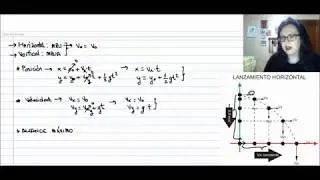 → Horizontal: MRU → Vx = Vo
→ Vertical: MRUA
* Posición → x = xo + Vo·t → x = Vo·t
y = yo + Voy·t + 1/2 gt² y = yo + 1/2 gt²
* Velocidad → Vx = Vo → Vx = Vo
Vy = Voy + gt Vy = g·t
* ALCANCE MÁXIMO
LANZAMIENTO HORIZONTAL